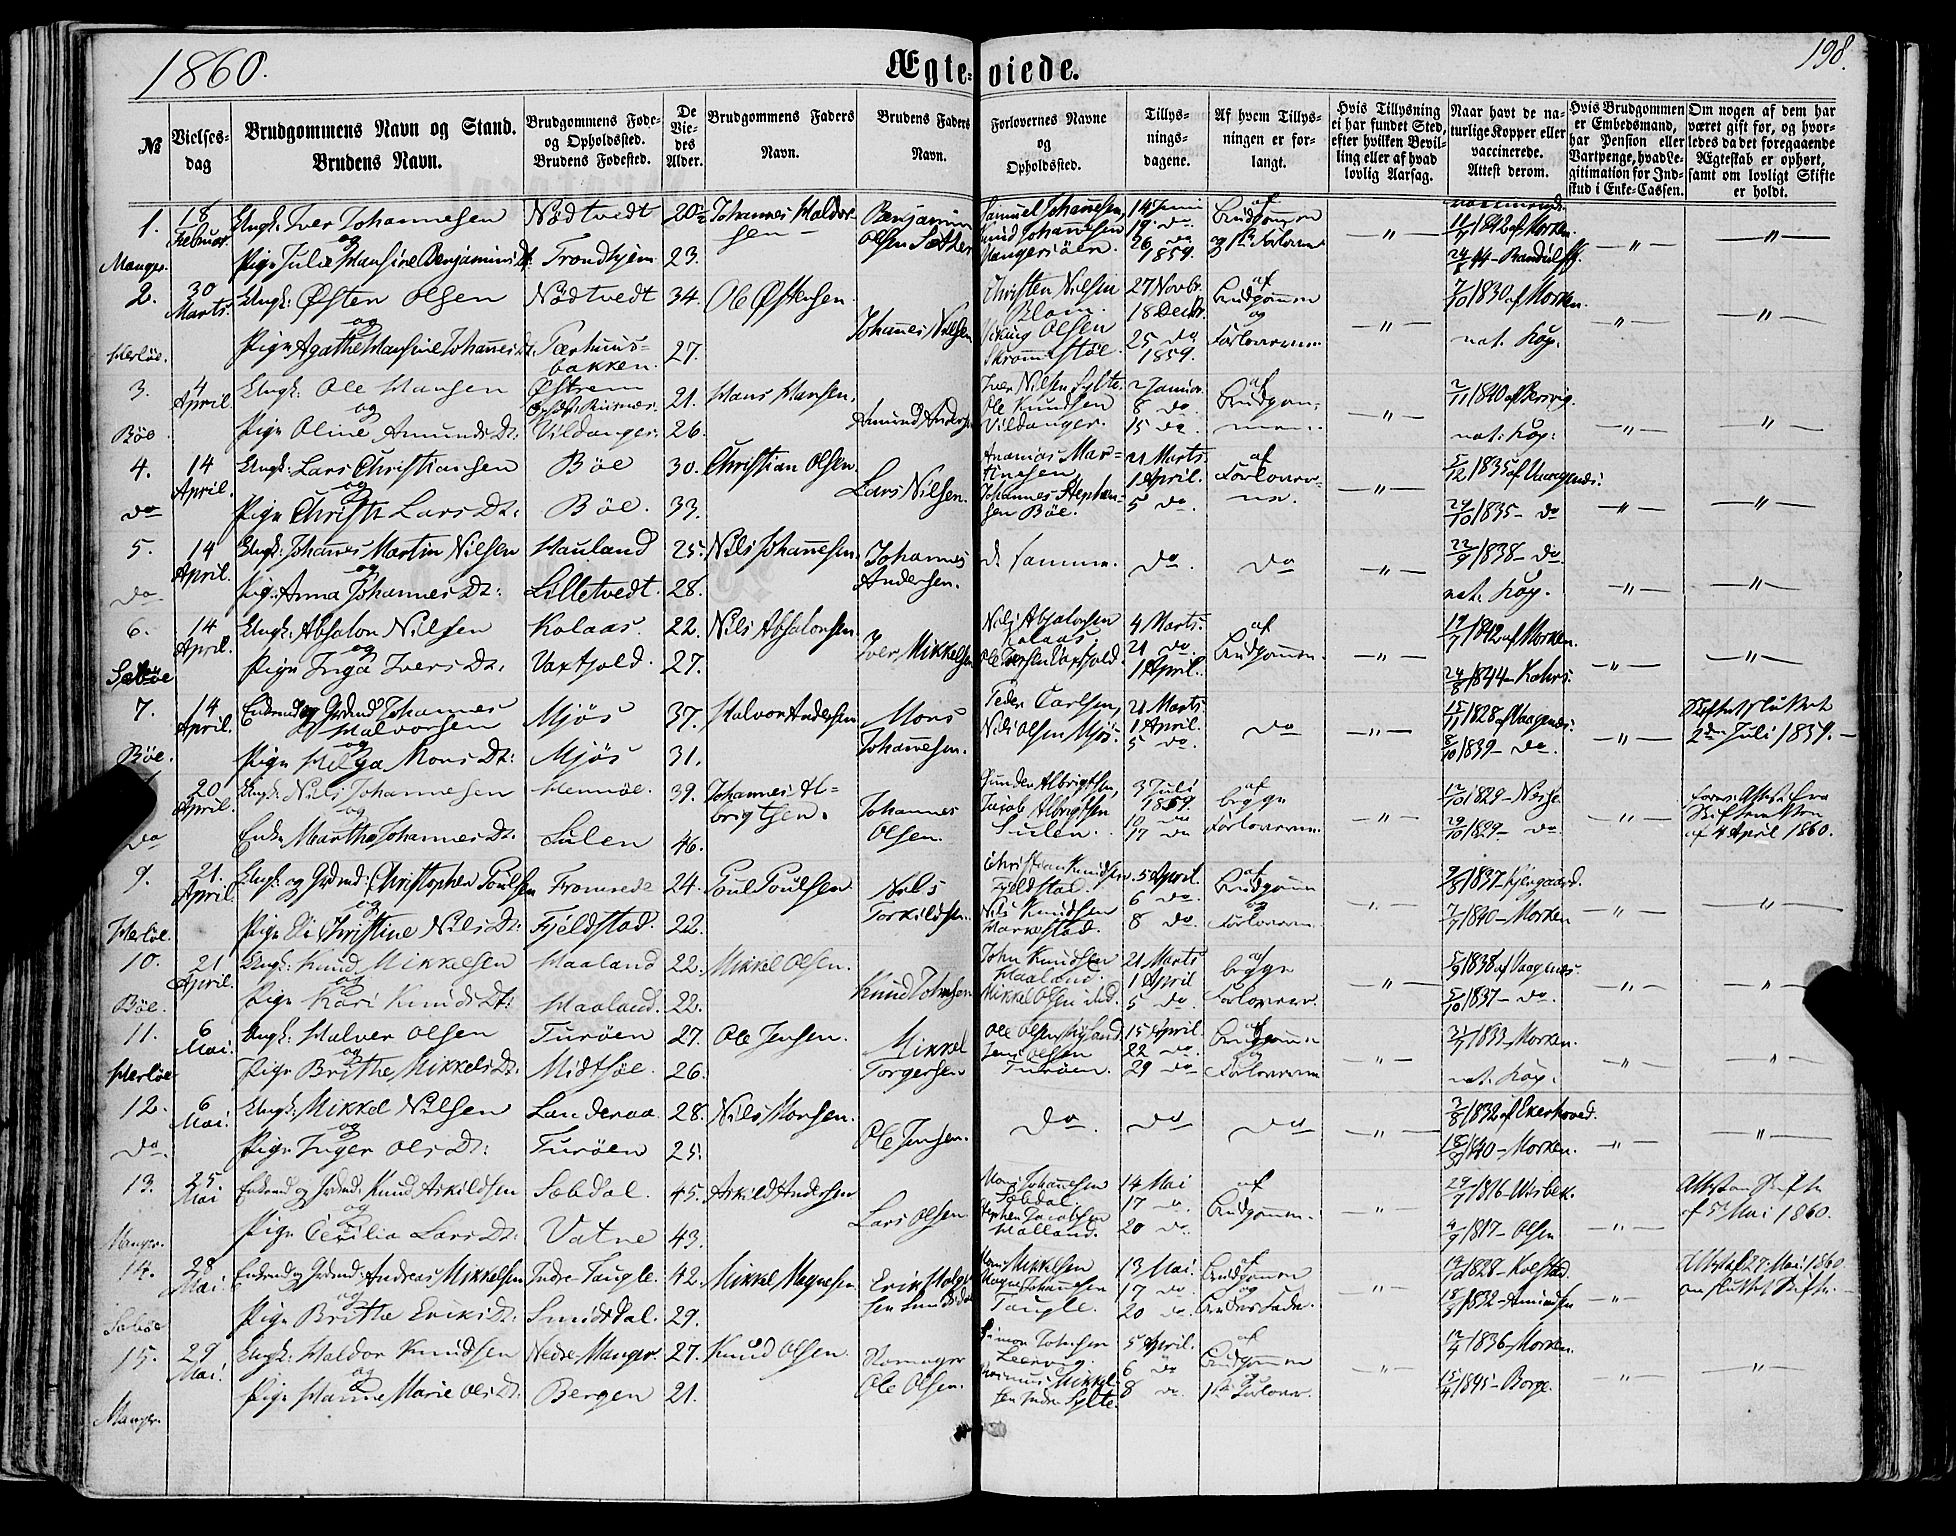 1860.
Ægte-
viede.
198.
№
Vielses-
dag
Brudgommens Navn og Stand.
Brudens Navn.
Brudgommens Føde-
og Opholdssted.
Brudens Fødested.
De
Vie-
des
Alder.
Brudgommens Faders
Navn.
Brudens Faders
Navn.
Forlovernes Navne
og
Opholdssted.
Tillys-
nings-
dagene.
Af hvem Tillys-
ningen er for-
langt.
Hvis Tillysning
ei har fundet Sted,
efter hvilken Bevil-
ling eller af hvad
lovlig Aarsag.
Naar havt de na-
turlige Kopper eller
vaccinerede.
Attest derom.
Hvis Brudgommen
er Embedsmand,
har Pension eller
Vartpenge, hvad Le-
gitimation for Ind-
skud i Enke-Cassen.
Om nogen af dem har
været gift før, og hvor-
ledes da det foregaaende
Ægteskab er ophørt,
samt om lovligt Skifte
er holdt.
1. Februar Ungk: Iver Johannesen Nødtvedt Johannes Haldor-
sen Benjamin
Olsen Samuel Johannesen, 14 Juni af Brudgommen
Knud Johannesen 19 do og Forlovere
26 do 1859. 1842 af Morken.
Manger. og Pige Julie Hansine Benjamins Dt: Trondhjem 23. 24/8 44 -
2. 30 Marts. Ungk: Østen Olsen Nødtvedt 34. Ole Østensen. Johannes Nilsen
Christen Nilsen Blom. 27 Novbr. 18 Decbr. 25 do 1859. af Brudgommen og Forloveren
7/10 1830 af Morken.
Herløe. og Pige Agathe Hansine Johannes Dt: bakken. 27. nat. Kop.
3. 4 April Ungk: Ole Hansen Østrem 21. Hans Hansen. Amund Anders.
Iver Nilsen Sylte. 2 Januar. 8 do 15 do af Brudgom-
men. Ole Knudsen Vildanger. 2/11 1840 af
Bøe. og Pige Oline Amunds Dt: Vildanger. 26. nat: Kop:
4. 14 April. Ungk: Lars Christiansen Bøe 30. Christian Olsen. Lars Nilsen.
Ananias Mar-
tinesen 21 Marts. 1 April. 5 do. af Forlover-
ne. Johannes Stephan-
sen Bøe. 5/12 1835 af Vaagenes:
do og Pige Christi Lars Dt: Bøe. 33. 29/10 1835 - do
5. 14 April. Ungk: Johannes Martin Nilsen Hauland 25. Nils Johannesen. Johannes
Andersen. d. samme. do. do 22/9 1838 - do.
do og Pige Anna Johannes Dt: Lilletvedt. 28. nat. Kop.
6. 14 April. Ungk: Absalon Nilsen Kolaas. 22. Nils Absalonsen. Iver Mikkelsen
Nils Absalonsen Kolaas. 4 Marts. 21 do. 1 April. af Brudgommen. 19/7 1842 af Morken.
Sæbøe og Pige Inga Ivers Dt: Vaxtfold. 27. Ole Iversen Vaxtfold. 24/8 1844 - Kahrs.
7. 14 April. Enkemd og Grdmd Johannes
Halvorsen Mjøs 37. Halvor Andersen Mons
Johannesen. Peder Carlsen, 21 Marts 1 April 5 do. do
Nils Olsen Mjøs. 15/11 1828 af Vaagenes: Skifte sluttet
2den Juli 1859.
Bøe. og Pige Helga Mons Dt: Mjøs 31. 8/10 1839 - do.
20 April. Ungk: Nils Johannesen Hennøe. 39. Johannes Al-
brigtsen. Johannes
Olsen. Albrigtsen, 3 Juli 1859. 10 do 17 do af begge Forloverne.
Jacob Albrigtsen 12/10 1829 - Nesse
af 4 April 1860.
do og Enke Martha Johannes Dt: Sulen 46. 29/10 1829 - do.
9. 21. April. Ungk: og Grdmd: Christopher Poulsen Fromreide 24. Poul Poulsen Nils
Torkildsen. Christian Knudsen Fjeldstad. 5 April. 6 do 8 do af Brudgommen og Forloveren.
Nils Knudsen 1837 - Kjergaard.
Herløe. og Pige Christine Nils Dt: Fjeldstad. 22. 7/7 1840 - Morken
10. 21 April. Ungk: Knud Mikkelsen Haaland 22. Mikkel Olsen. Knud Johnsen
John Knudsen Haaland. 21 Marts 1 April 5 do af begge Forlovere.
Mikkel Olsen ibid. 5/9 1838 af Vaagenes.
Bøe. og Pige Kari Knuds Dt: Haaland. 22. 5/10 1837 - do.
11. 6 Mai. Ungk: Halver Olsen Turøen 27. Ole Jensen. Mikkel
Torgersen Ole Olsen 15 April. 22 do 29 do af Brudgommen og Forloveren
Jens Olsen Turøen. 1833 - Morken.
Herløe og Pige Brithe Mikkels Dt: Midtsøe. 26. nat. Kop.
12. 6 Mai. Ungk: Mikkel Nilsen Landeraa 28. Nils Monsen. Ole Jensen.
do. do do 3/8 1832 af Ekerhoved.
do. og Pige Inger Ols Dt: Turøen 25. 1840 - Morken.
13. 25 Mai Enkemd og Grdmd. Knud Askildsen Sæbdal. 45. Askild Andersen Lars Olsen
Johannesen Sæbdal. 14 Mai 17 do 20 do. af Brudgommen.
Stephen Jacobsen Halland. 29/7 1816 - Wisbek. Attest om Skifte
af 5 Mai 1860.
Manger. og Pige Cecilia Lars Dt: Vatne 43. 4/9 1817 - Olsen
14. 28 Mai. Enkemd og Grdmd: Andreas Mikkelsen Indre-Taugle. 42. Mikkel Magnesen Erik
Mikkelsen 13 Mai. 17 do. 20 do. af Brudgommen og Brudens Fader.
Magne Johannesen Taugle. 1828 - Kolstad Attest af 27 Mai 1860
om sluttet Skifte.
Sæbøe og Pige Brithe Eriks Dt: Smidsdal. 29. 1832 - Amundsen
15. 29 Mai. Ungk: Haldor Knudsen Nedre-Manger. 27. Knud Olsen
Ole Olsen. Simon Johnsen 5 April. 6 do 8 do. af Brudgommen og 1ste Forlover.
Rasmus Mikkel-
sen Indre Sylte. 12/4 1836 - Morken.
Manger. og Pige Hanne Marie Ols Dt: Bergen 21. 15/4 1845 - Borge.